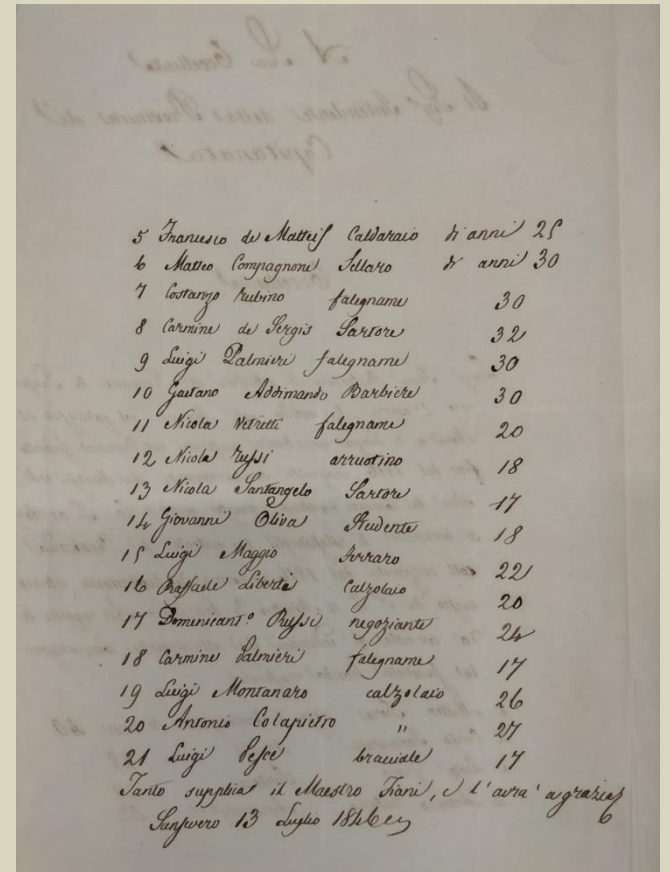 5 Francesco de Matteis Caldaraio di anni 25
6 Matteo Compagnone Sellaro di anni 30
7 Costanzo Rubino falegname 30
8 Carmine de Sergis Sartore 32
9 Luigi Palmieri falegname 30
10 Gaetano Addimando Barbiere 30
11 Nicola Vetretti falegname 20
12 Nicola Russi arruotino 18
13 Nicola Santangelo Sartore 17
14 Giovanni Oliva Studente 18
15 Luigi Maggio Ferraro 22
16 Raffaele Liberti Calzolaio 20
17 Domenicant.º Russi negoziante 24
18 Carmine Palmieri falegname 17
19 Luigi Montanaro calzolaio 26
20 Antonio Colapietro " 27
21 Luigi Pesce bracciale 17
Tanto supplica il Maestro Fiani, e l'avrà a grazia
Sansevero 13 Luglio 1846